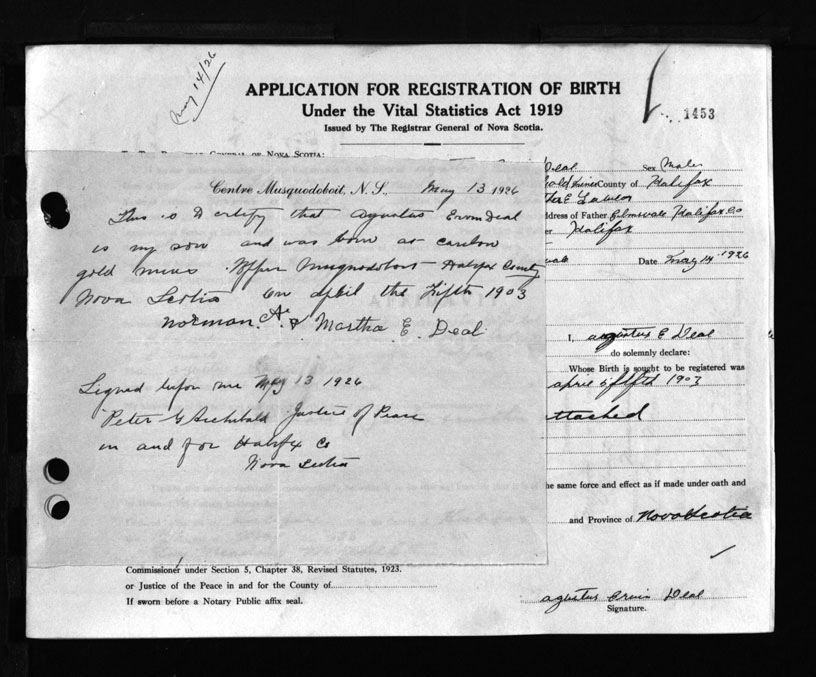 May 14/26
APPLICATION FOR REGISTRATION OF BIRTH
Under the Vital Statistics Act 1919
Issued by The Registrar General of Nova Scotia.
1453
To The Registrar General of Nova Scotia:
Deal Sex Male
Gold Mines County of Halifax
E Lawlor
ddress of Father Elmsvale Halifax Co
er Halifax
vale Date May 14 1926
Centre Musquodoboit, N. S., May 13 1926
This is to certify that Agustus Ervin Deal
is my son and was born at caribou
gold mines Upper Musquodoboit Halifax County
Nova Scotia on april the Fifth 1903
Norman A. & Martha E. Deal
Signed before me May 13 1926
Peter G Archibald Justice of Peace
in and for Halifax Co
Nova Scotia
I, agustus E Deal
do solemnly declare:
Whose Birth is sought to be registered was
april fifth 1903
attached
he same force and effect as if made under oath and
and Province of Nova Scotia
Commissioner under Section 5, Chapter 38, Revised Statutes, 1923.
or Justice of the Peace in and for the County of
If sworn before a Notary Public affix seal.
agustus Ervin Deal
Signature.